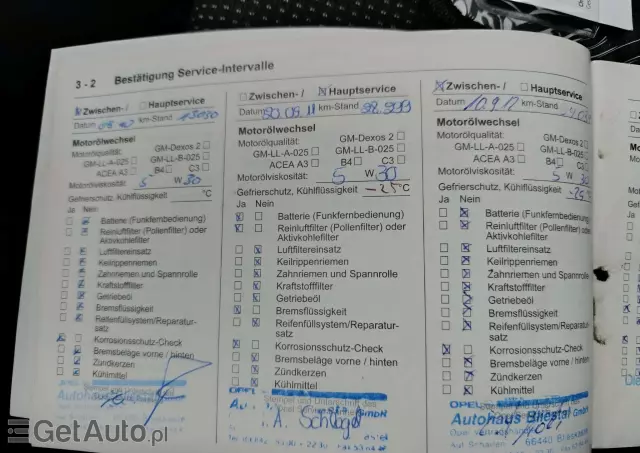 3 - 2 Bestätigung Service-Intervalle
Zwischen- / Hauptservice
Datum km-Stand
Motorölwechsel
Motorölqualität: GM-Dexos 2
GM-LL-A-025 GM-LL-B-025
ACEA A3 B4 C3
Motorölviskosität: 5 W 30
Gefrierschutz, Kühlflüssigkeit °C
Ja Nein
Batterie (Funkfernbedienung)
Reinluftfilter (Pollenfilter) oder
Aktivkohlefilter
Luftfiltereinsatz
Keilrippenriemen
Zahnriemen und Spannrolle
Kraftstofffilter
Getriebeöl
Bremsflüssigkeit
Reifenfüllsystem/Reparatur-
satz
Korrosionsschutz-Check
Bremsbeläge vorne / hinten
Zündkerzen
Kühlmittel
OPEL
Autohaus
Zwischen- / Hauptservice
Datum 30.05.11 km-Stand 38.999
Motorölwechsel
Motorölqualität: GM-Dexos 2
GM-LL-A-025 GM-LL-B-025
ACEA A3 B4 C3
Motorölviskosität: 5 W 30
Gefrierschutz, Kühlflüssigkeit -25 °C
Ja Nein
Batterie (Funkfernbedienung)
Reinluftfilter (Pollenfilter) oder
Aktivkohlefilter
Luftfiltereinsatz
Keilrippenriemen
Zahnriemen und Spannrolle
Kraftstofffilter
Getriebeöl
Bremsflüssigkeit
Reifenfüllsystem/Reparatur-
satz
Korrosionsschutz-Check
Bremsbeläge vorne / hinten
Zündkerzen
Kühlmittel
OPEL
GmbH
A. Schlagel
Zwischen- / Hauptservice
Datum 10.9.12 km-Stand
Motorölwechsel
Motorölqualität: GM-Dexos 2
GM-LL-A-025 GM-LL-B-025
ACEA A3 B4 C3
Motorölviskosität: 5 W 30
Gefrierschutz, Kühlflüssigkeit -25 °C
Ja Nein
Batterie (Funkfernbedienung)
Reinluftfilter (Pollenfilter) oder
Aktivkohlefilter
Luftfiltereinsatz
Keilrippenriemen
Zahnriemen und Spannrolle
Kraftstofffilter
Getriebeöl
Bremsflüssigkeit
Reifenfüllsystem/Reparatur-
satz
Korrosionsschutz-Check
Bremsbeläge vorne / hinten
Zündkerzen
Kühlmittel
OPEL
Autohaus Bliestal GmbH
66440
GetAuto.pl